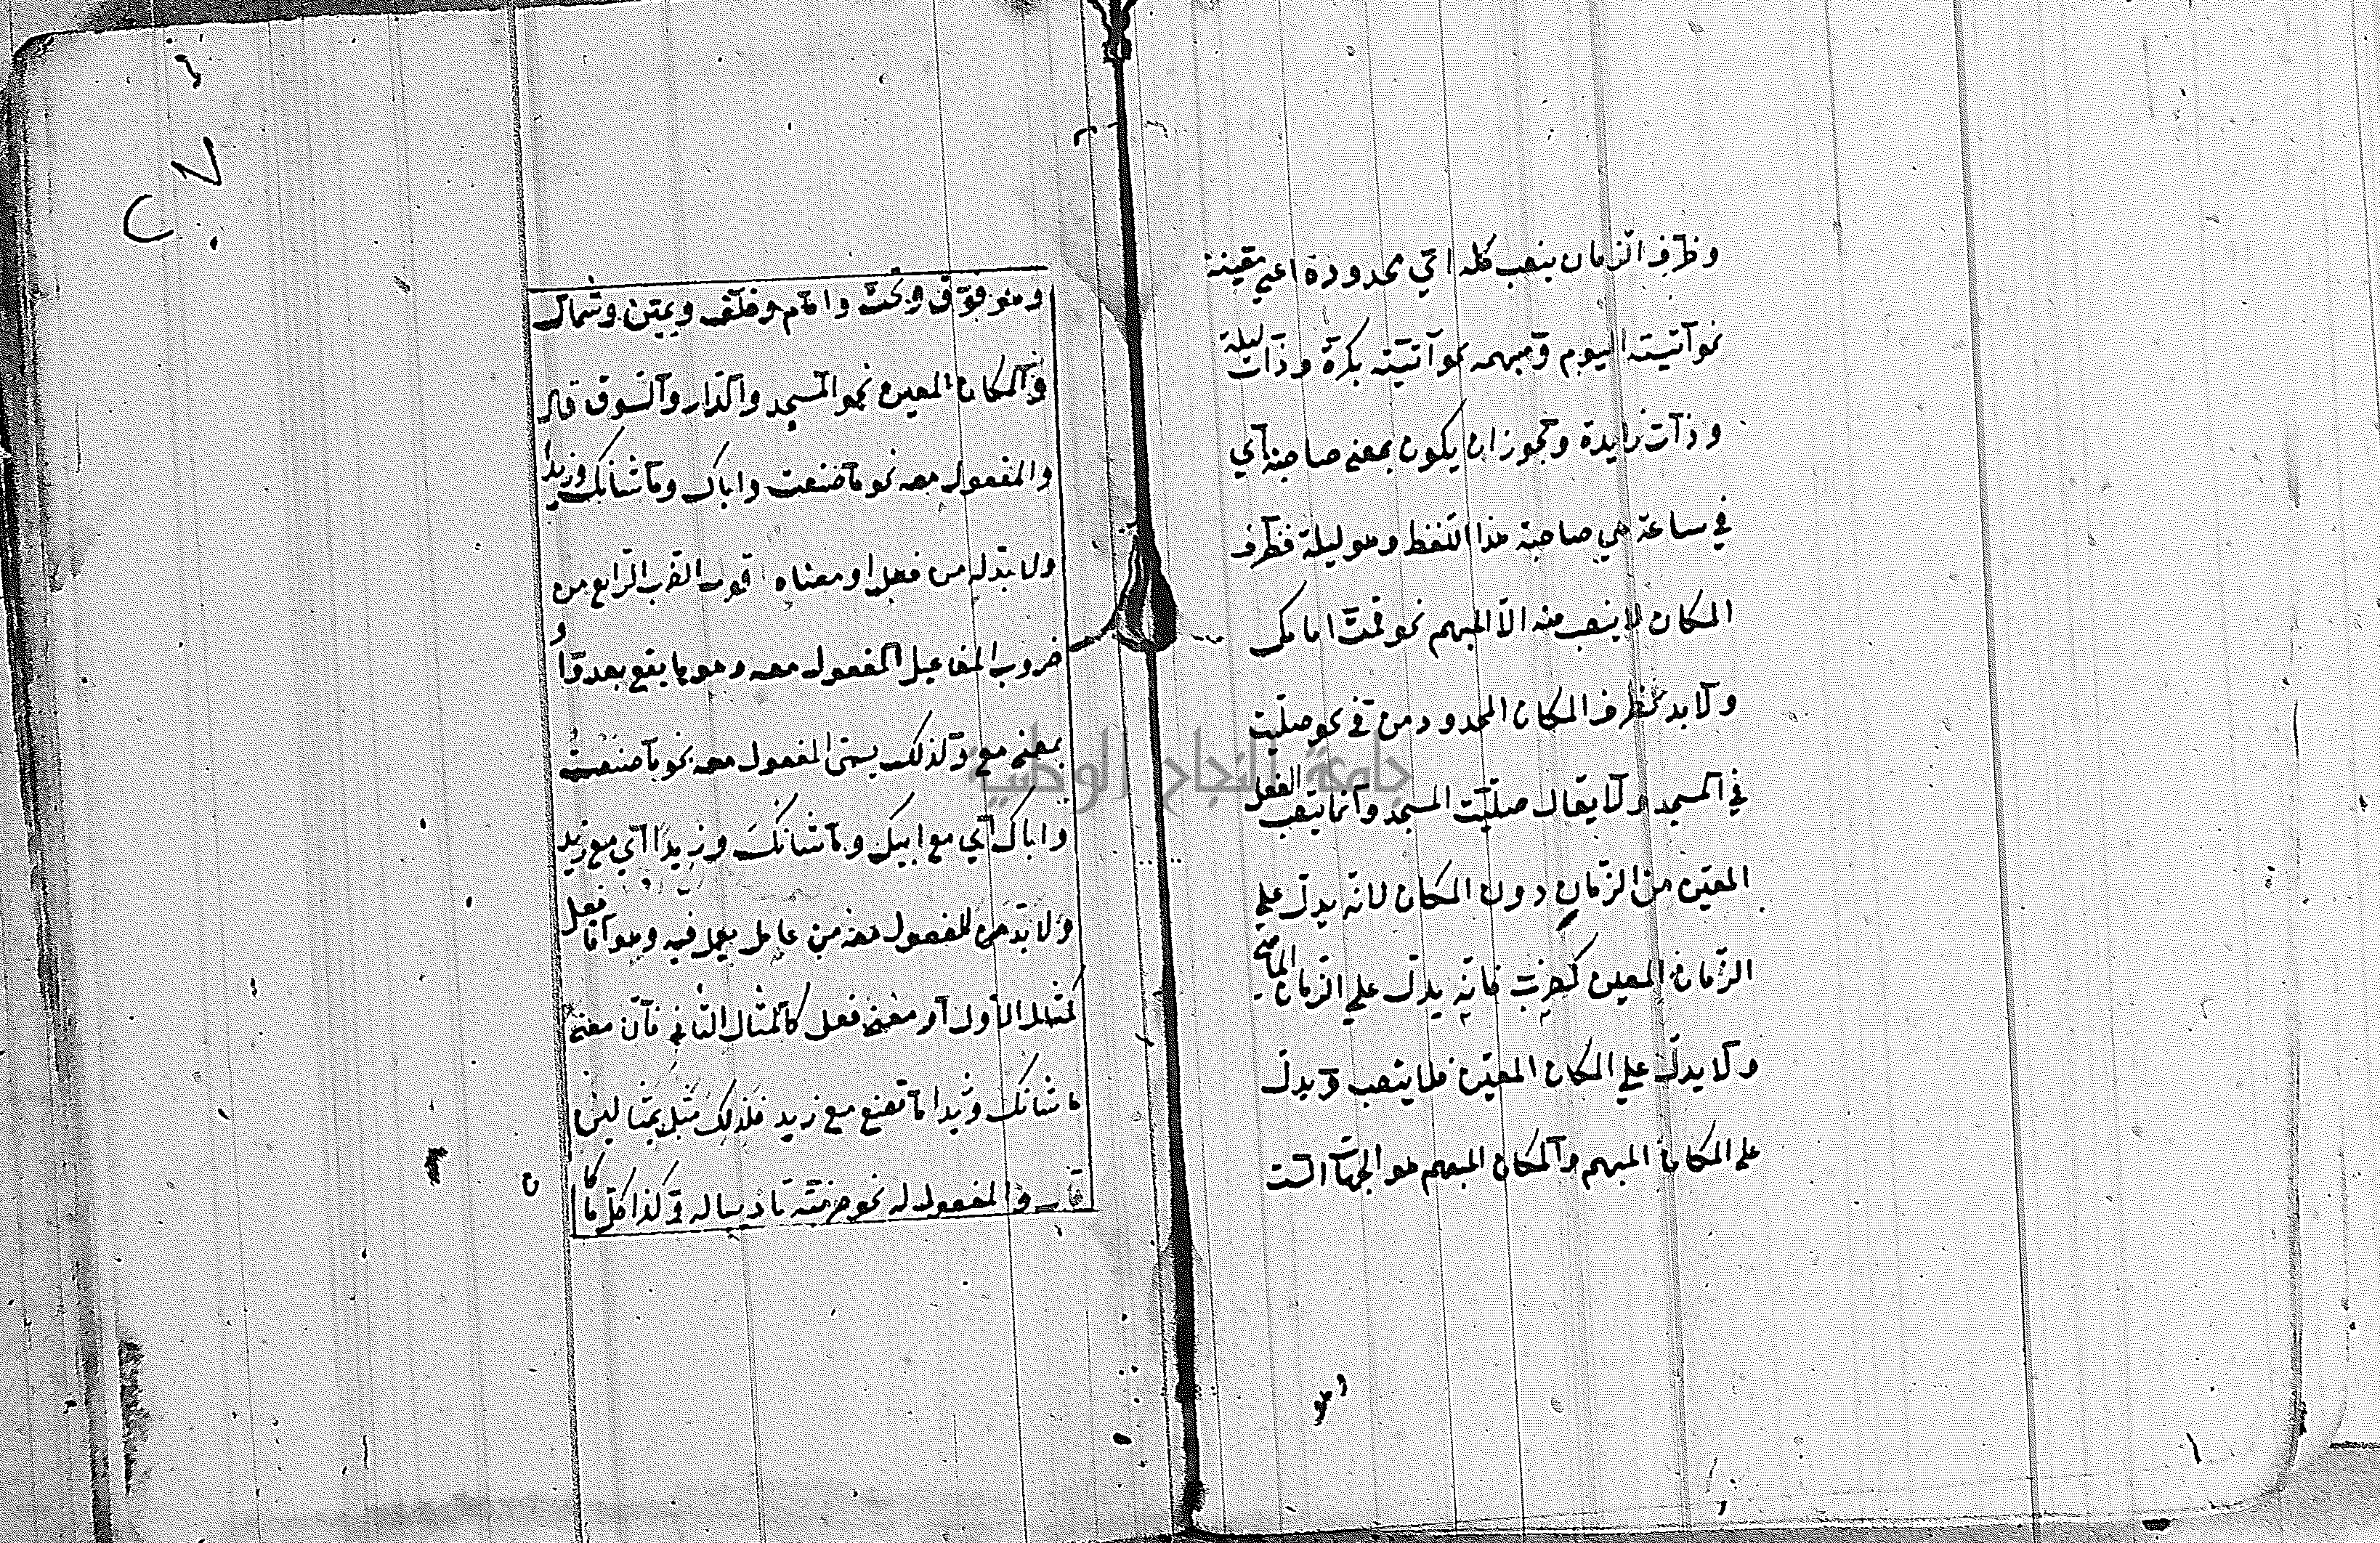 وظرف الزمان ينصب كله اي محدودة اعني معينة
نحو آتيته اليوم ومبهمه نحو آتيته بكرة وذات ليلة
وذات زايدة ويجوز ان يكون بمعني صاحبة اي
في ساعة هي صاحبة هذا اللفظ وهو ليلة فظرف
المكان لا ينصب منه الا المبهم نحو قمت امامك
ولا بد لظرف المكان المحدود من في نحو صليت
في المسجد ولا يقال صليت المسجد وانما ينصب الفعل
المعين من الزمان دون المكان لانه يدل علي
الزمان المعين كضرب فانه يدل علي الزمان الماضي
ولا يدل علي المكان المعين فلا ينصب ويدل
علي المكان المبهم والمكان المبهم هو الجهات الست
٢٧
وهو فوق وتحت وامام وخلف ويمين وشمال
والمكان المعين نحو المسجد والدار والسوق قال
والمفعول معه نحو ما صنعت واباك وما شانك وزيدا
ولا بد له من فعل او معناه اقول الضرب الرابع من
ضروب المفاعيل المفعول معه وهو ما يقع بعد واو
بمعني مع ولذلك يسمي المفعول معه نحو ما صنعت
واباك اي مع ابيك وما شانك وزيدا اي مع زيد
ولا بد من للمفعول معه من عامل يعمل فيه وهو اما فعل
كمثل الاول او معني فعل كالمثال الثاني فان معني
ما شانك وزيدا ما تصنع مع زيد فلذلك مثل بمثالين
قال والمفعول له نحو ضربته تاديبا له وكذا كل ما كا
ن
جامعة النجاح الوطنية